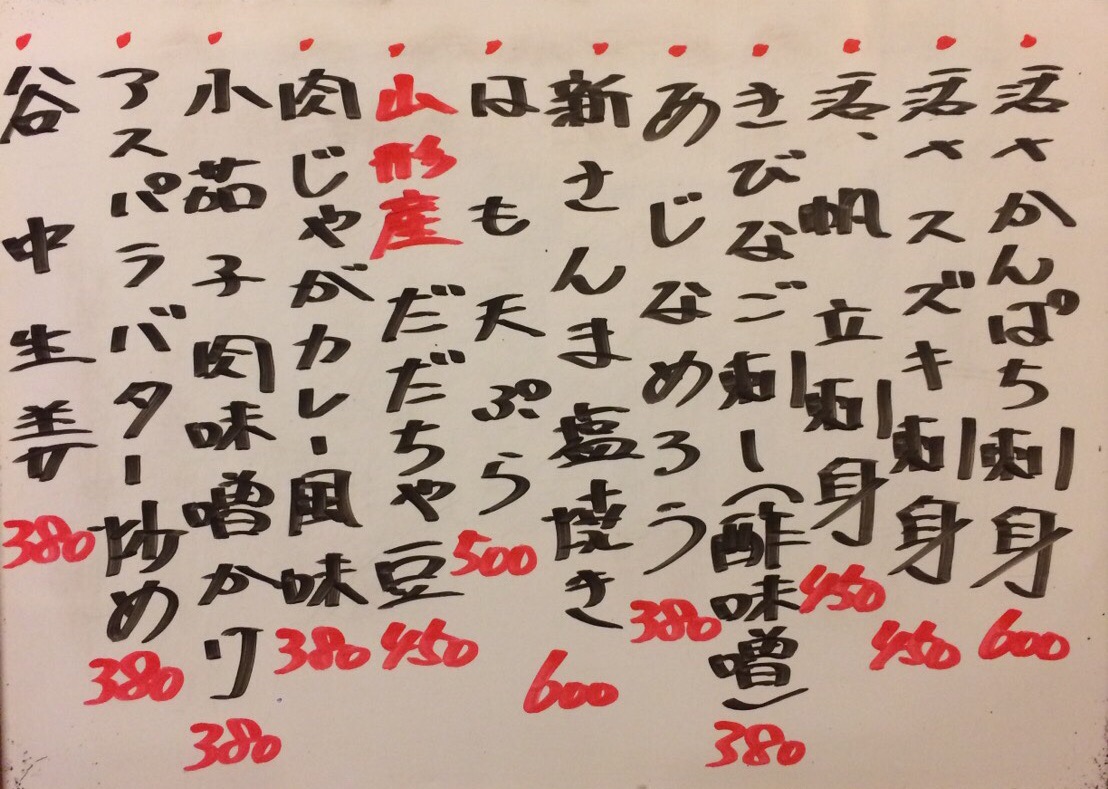 ・活〆かんぱち刺身 600
・活〆スズキ刺身 450
・活、帆立刺身 450
・きびなご刺し(酢味噌) 380
・あじなめろう 380
・新さんま塩焼き 600
・はも天ぷら 500
・山形産だだちゃ豆 450
・肉じゃがカレー風味 380
・小茄子肉味噌かけ 380
・アスパラバター炒め 380
・谷中生姜 380